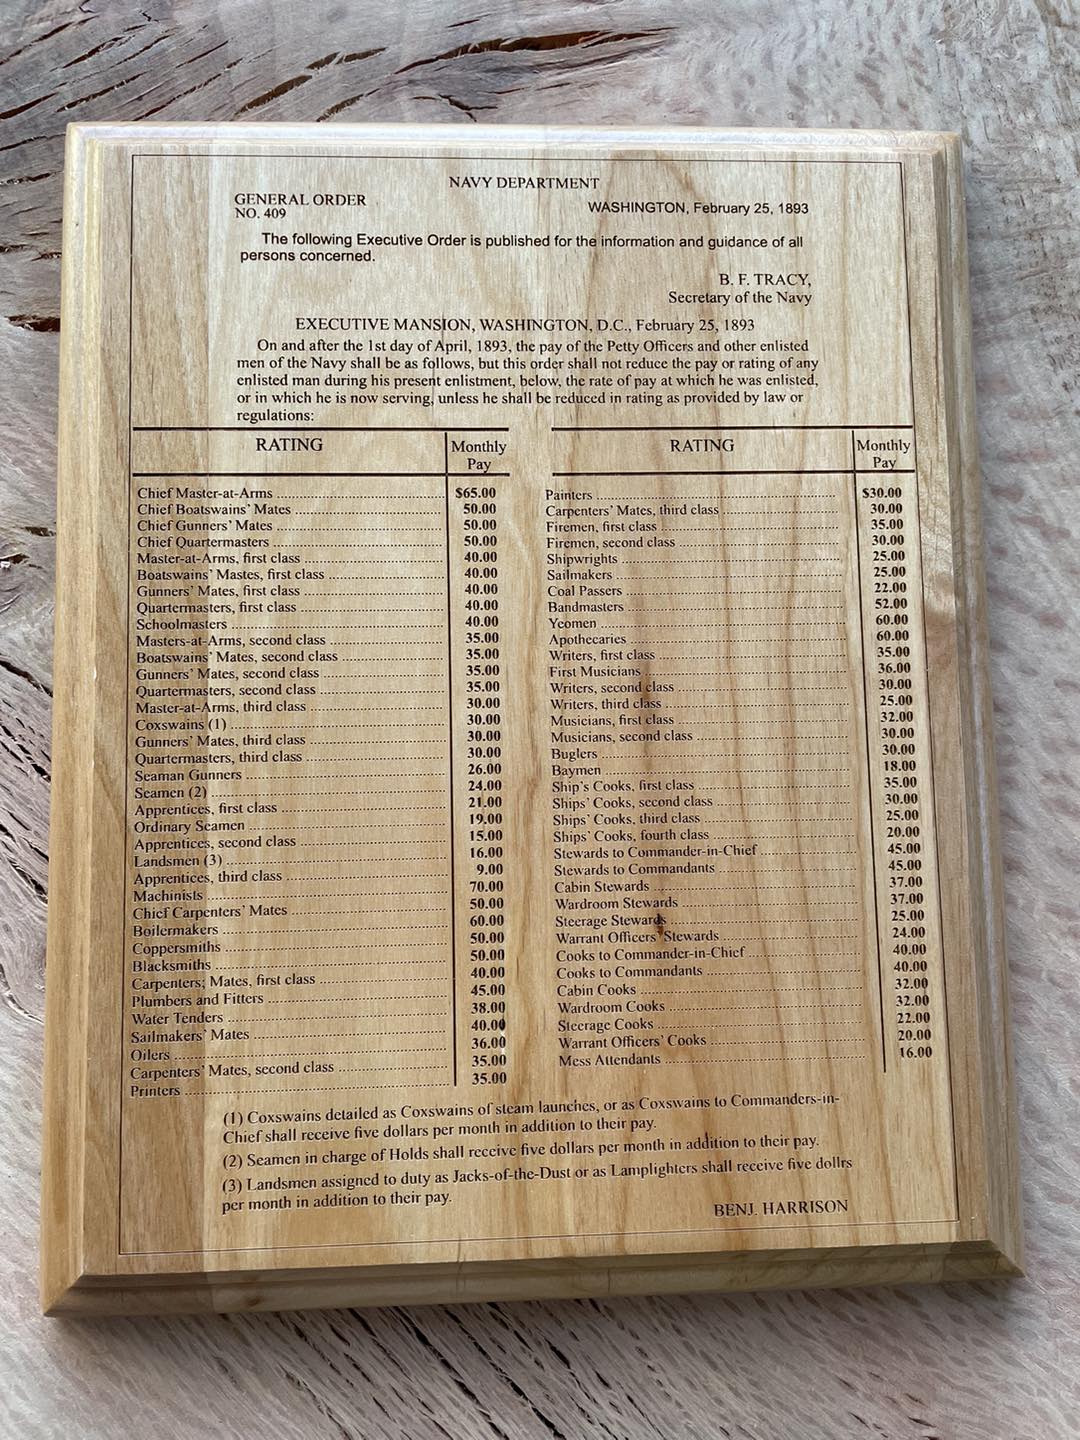 NAVY DEPARTMENT
GENERAL ORDER
NO. 409
WASHINGTON, February 25, 1893
The following Executive Order is published for the information and guidance of all
persons concerned.
B. F. TRACY,
Secretary of the Navy
EXECUTIVE MANSION, WASHINGTON, D.C., February 25, 1893
On and after the 1st day of April, 1893, the pay of the Petty Officers and other enlisted
men of the Navy shall be as follows, but this order shall not reduce the pay or rating of any
enlisted man during his present enlistment, below, the rate of pay at which he was enlisted,
or in which he is now serving, unless he shall be reduced in rating as provided by law or
regulations:
RATING Monthly
Pay
Chief Master-at-Arms $65.00
Chief Boatswains' Mates 50.00
Chief Gunners' Mates 50.00
Chief Quartermasters 50.00
Master-at-Arms, first class 40.00
Boatswains' Mastes, first class 40.00
Gunners' Mates, first class 40.00
Quartermasters, first class 40.00
Schoolmasters 40.00
Masters-at-Arms, second class 35.00
Boatswains' Mates, second class 35.00
Gunners' Mates, second class 35.00
Quartermasters, second class 35.00
Master-at-Arms, third class 30.00
Coxswains (1) 30.00
Gunners' Mates, third class 30.00
Quartermasters, third class 30.00
Seaman Gunners 26.00
Seamen (2) 24.00
Apprentices, first class 21.00
Ordinary Seamen 19.00
Apprentices, second class 15.00
Landsmen (3) 16.00
Apprentices, third class 9.00
Machinists 70.00
Chief Carpenters' Mates 50.00
Boilermakers 60.00
Coppersmiths 50.00
Blacksmiths 50.00
Carpenters; Mates, first class 40.00
Plumbers and Fitters 45.00
Water Tenders 38.00
Sailmakers' Mates 40.00
Oilers 36.00
Carpenters' Mates, second class 35.00
Printers 35.00
RATING Monthly
Pay
Painters $30.00
Carpenters' Mates, third class 30.00
Firemen, first class 35.00
Firemen, second class 30.00
Shipwrights 25.00
Sailmakers 25.00
Coal Passers 22.00
Bandmasters 52.00
Yeomen 60.00
Apothecaries 60.00
Writers, first class 35.00
First Musicians 36.00
Writers, second class 30.00
Writers, third class 25.00
Musicians, first class 32.00
Musicians, second class 30.00
Buglers 30.00
Baymen 18.00
Ship's Cooks, first class 35.00
Ships' Cooks, second class 30.00
Ships' Cooks, third class 25.00
Ships' Cooks, fourth class 20.00
Stewards to Commander-in-Chief 45.00
Stewards to Commandants 45.00
Cabin Stewards 37.00
Wardroom Stewards 37.00
Steerage Stewards 25.00
Warrant Officers' Stewards 24.00
Cooks to Commander-in-Chief 40.00
Cooks to Commandants 40.00
Cabin Cooks 32.00
Wardroom Cooks 32.00
Steerage Cooks 22.00
Warrant Officers' Cooks 20.00
Mess Attendants 16.00
(1) Coxswains detailed as Coxswains of steam launches, or as Coxswains to Commanders-in-
Chief shall receive five dollars per month in addition to their pay.
(2) Seamen in charge of Holds shall receive five dollars per month in addition to their pay.
(3) Landsmen assigned to duty as Jacks-of-the-Dust or as Lamplighters shall receive five dollrs
per month in addition to their pay.
BENJ. HARRISON